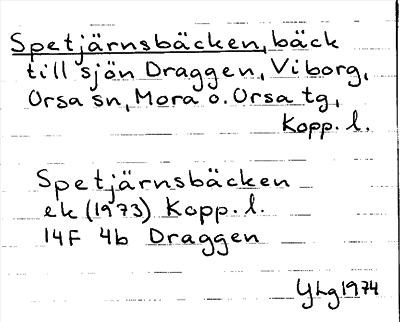 Spetjärnsbäcken, bäck
till sjön Draggen, Viborg,
Orsa sn, Mora o. Orsa tg,
Kopp. l.
Spetjärnsbäcken
ek (1973) Kopp. l.
14F 4b Draggen
YLg 1974